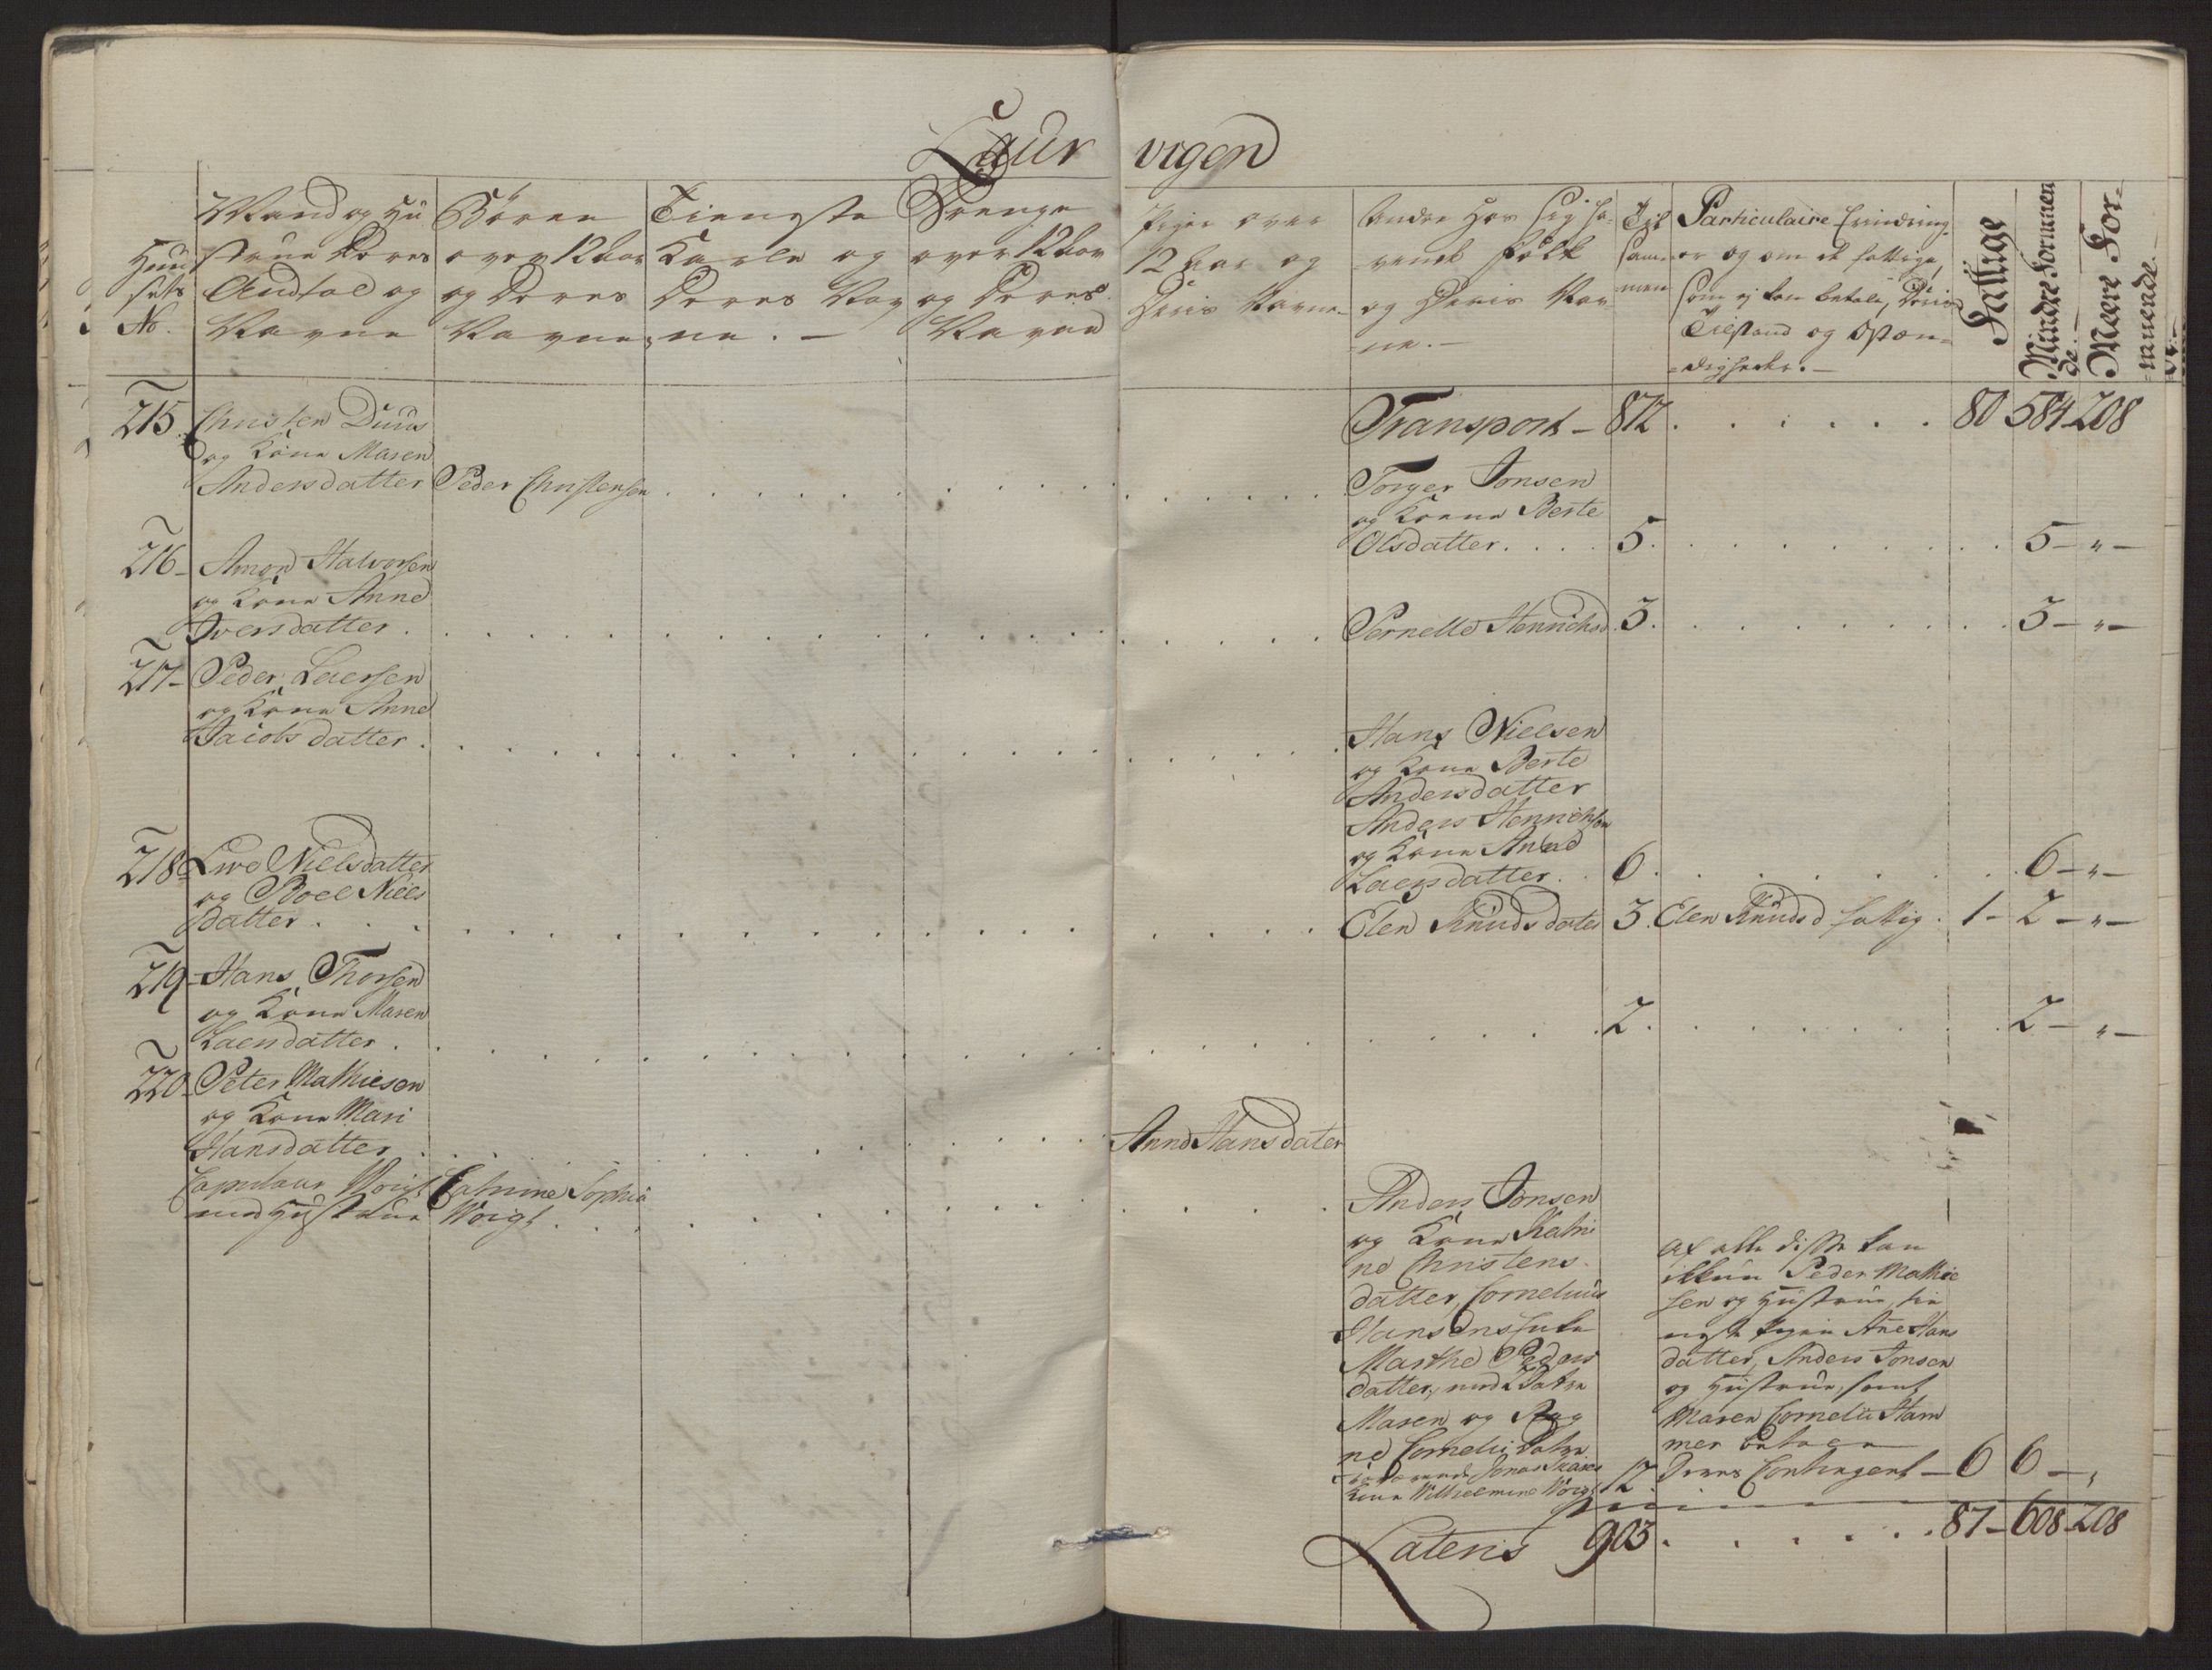 Laur vigen
Huu
sets
No.
Mand og Hu
strue Deres
Andtal og
Navne
Børen
over 12 Aar
og Deres
Navne
Tieneste
Karle og
Deres Nav
ne. —
Drenge
over 12 Aar
og Deres
Navne
Piger over
12 Aar og
Deris Navne
Andre Hos Sig ha-
vende Folk
og Deris Nav
ne. —
Til
sam-
men
Particulaire Erindring-
er og om de fattige,
som ej kan betale, Deris
Tilstand og Omstæn-
digheder. —
Fattige
Mindre Formuen
de. —
Meere For-
muende
Transport - 872 . . . . . . 80 584 208
215. Christen Duus
og Kone Maren
Andersdatter Peder Christensen
Torger Jonsen
og Konne Berte
Olsdatter. . . . 5. 5 - " -
216 - Amon Halvorsen
og Kone Anne
Iversdatter .
Pernelle Henrichsd. 3. 3 - " -
217 - Peder Laersen
og Kone Anne
Jacobsdatter .
Hans Nielsen
og Kone Berte
Andersdatter
Anders Henrichsen
og Kone Anne
Laersdatter. . 6. 6 - " -
218 - Live Nielsdatter
og Boel Niels
datter . . .
Elen Knudsdater 3. Elen Knudsd fattig. 1 - 2 - " -
219 - Hans Thorsen
og Kone Maren
Laersdatter . 2. 2 - " -
220 - Peter Mathiesen
og Kone Mari
Hansdatter . . Anne Hansdater
Voigt Catrine Sophia
med Hustrue Voigt . . .
Anders Jonsen
og Kone Katri
ne Christens-
datter, Cornelius
Hansens
Marthe Peders
datter, med
Maren og
ne Cornelii
Jonas
Kone Wilhelmine Voigt 12.
Af alle disse kan
ikkun Peder Mathie
sen og Hustrue, tie
neste Pigen Ane Hans
datter, Anders Jonsen
og Hustrue, samt
Maren Cornelii Ham
mer betale
Deres Contingent - 6 6 - "
Lateris 903 . . . . . . 87 - 608 - 208